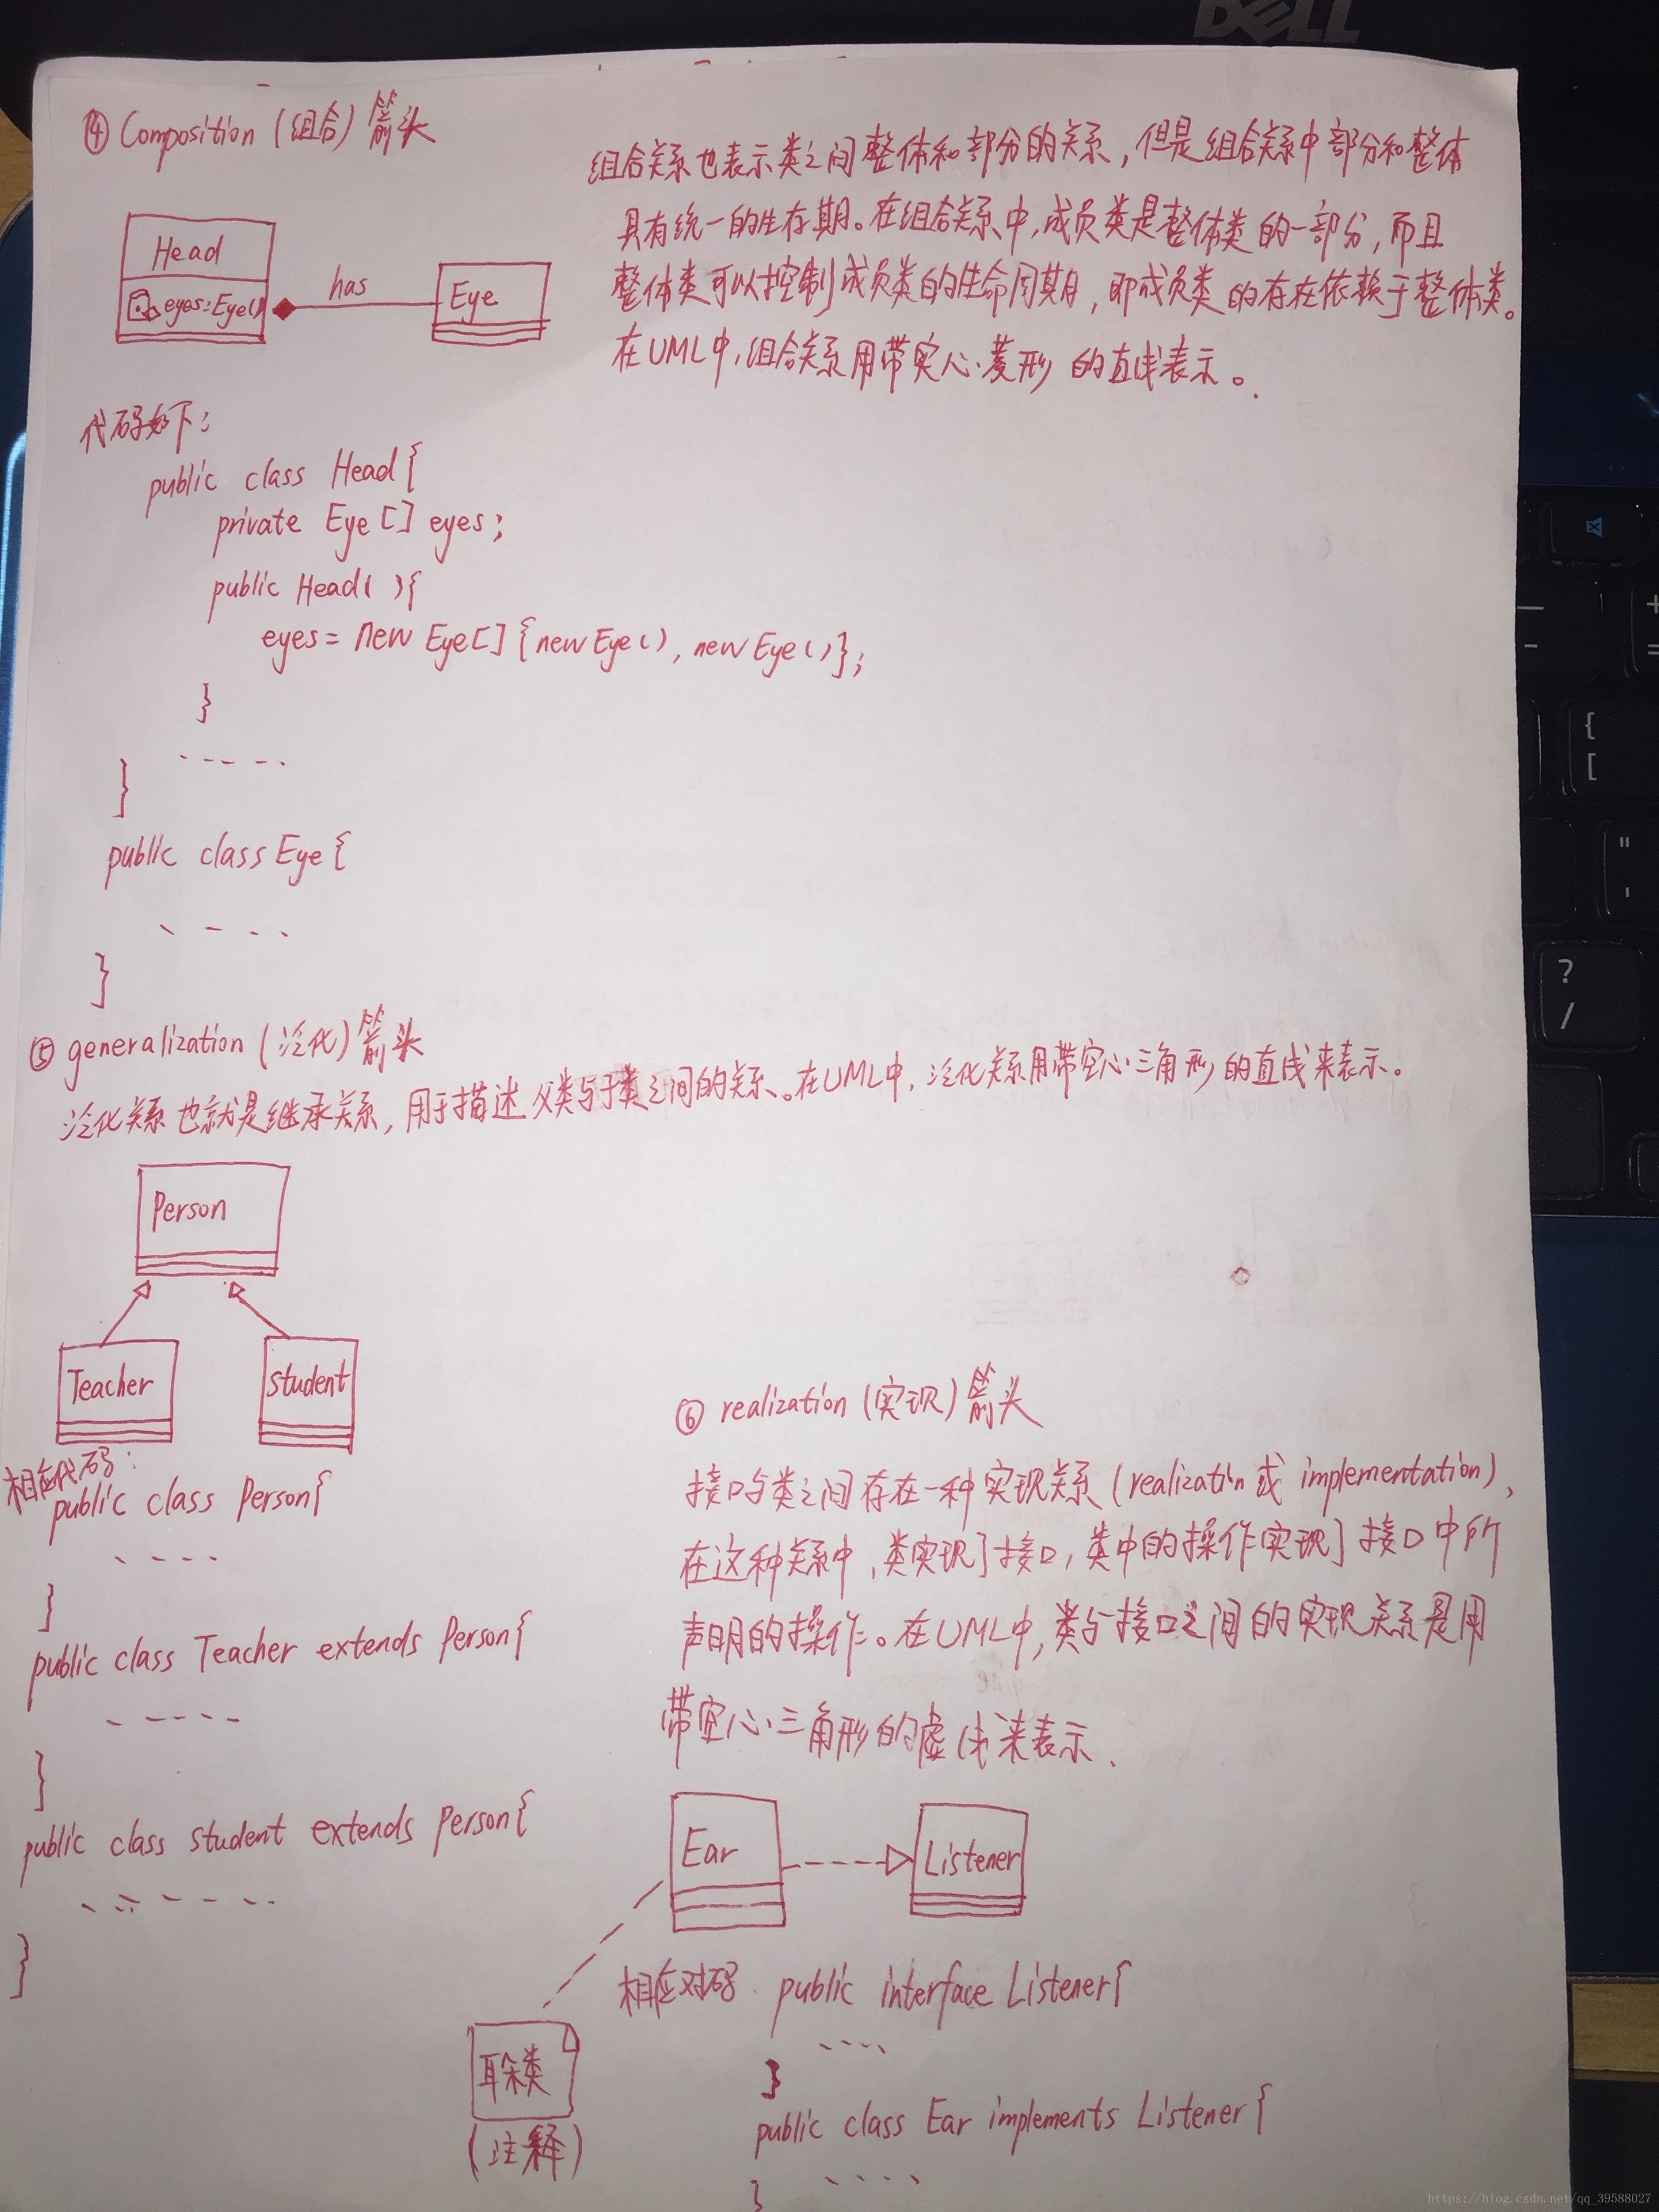 DELL
④ Composition (组合) 箭头
组合关系也表示类之间整体和部分的关系，但是组合关系中部分和整体
具有统一的生存期。在组合关系中，成员类是整体类的一部分，而且
整体类可以控制成员类的生命周期，即成员类的存在依赖于整体类。
在UML中，组合关系用带实心菱形的直线表示。
Head
eyes:Eye()
has
Eye
代码如下：
public class Head{
private Eye[] eyes;
public Head( ){
eyes= new Eye[]{new Eye(), new Eye()};
}
-----
}
public class Eye{
----
}
⑤ generalization (泛化) 箭头
泛化关系也就是继承关系，用于描述父类与子类之间的关系。在UML中，泛化关系用带空心三角形的直线来表示。
Person
Teacher
student
相应代码：
public class Person{
----
}
public class Teacher extends Person{
-----
}
public class student extends Person{
------
}
⑥ realization (实现) 箭头
接口与类之间存在一种实现关系(realizatin或 implementation)，
在这种关系中，类实现了接口，类中的操作实现了接口中所
声明的操作。在UML中，类与接口之间的实现关系是用
带空心三角形的虚线来表示.
Ear
Listener
耳朵类
(注释)
相应对码. public interface Listener{
----
}
public class Ear implements Listener{
----
}
— -
+ =
{ [
" '
? /
https://blog.csdn.net/qq_39588027